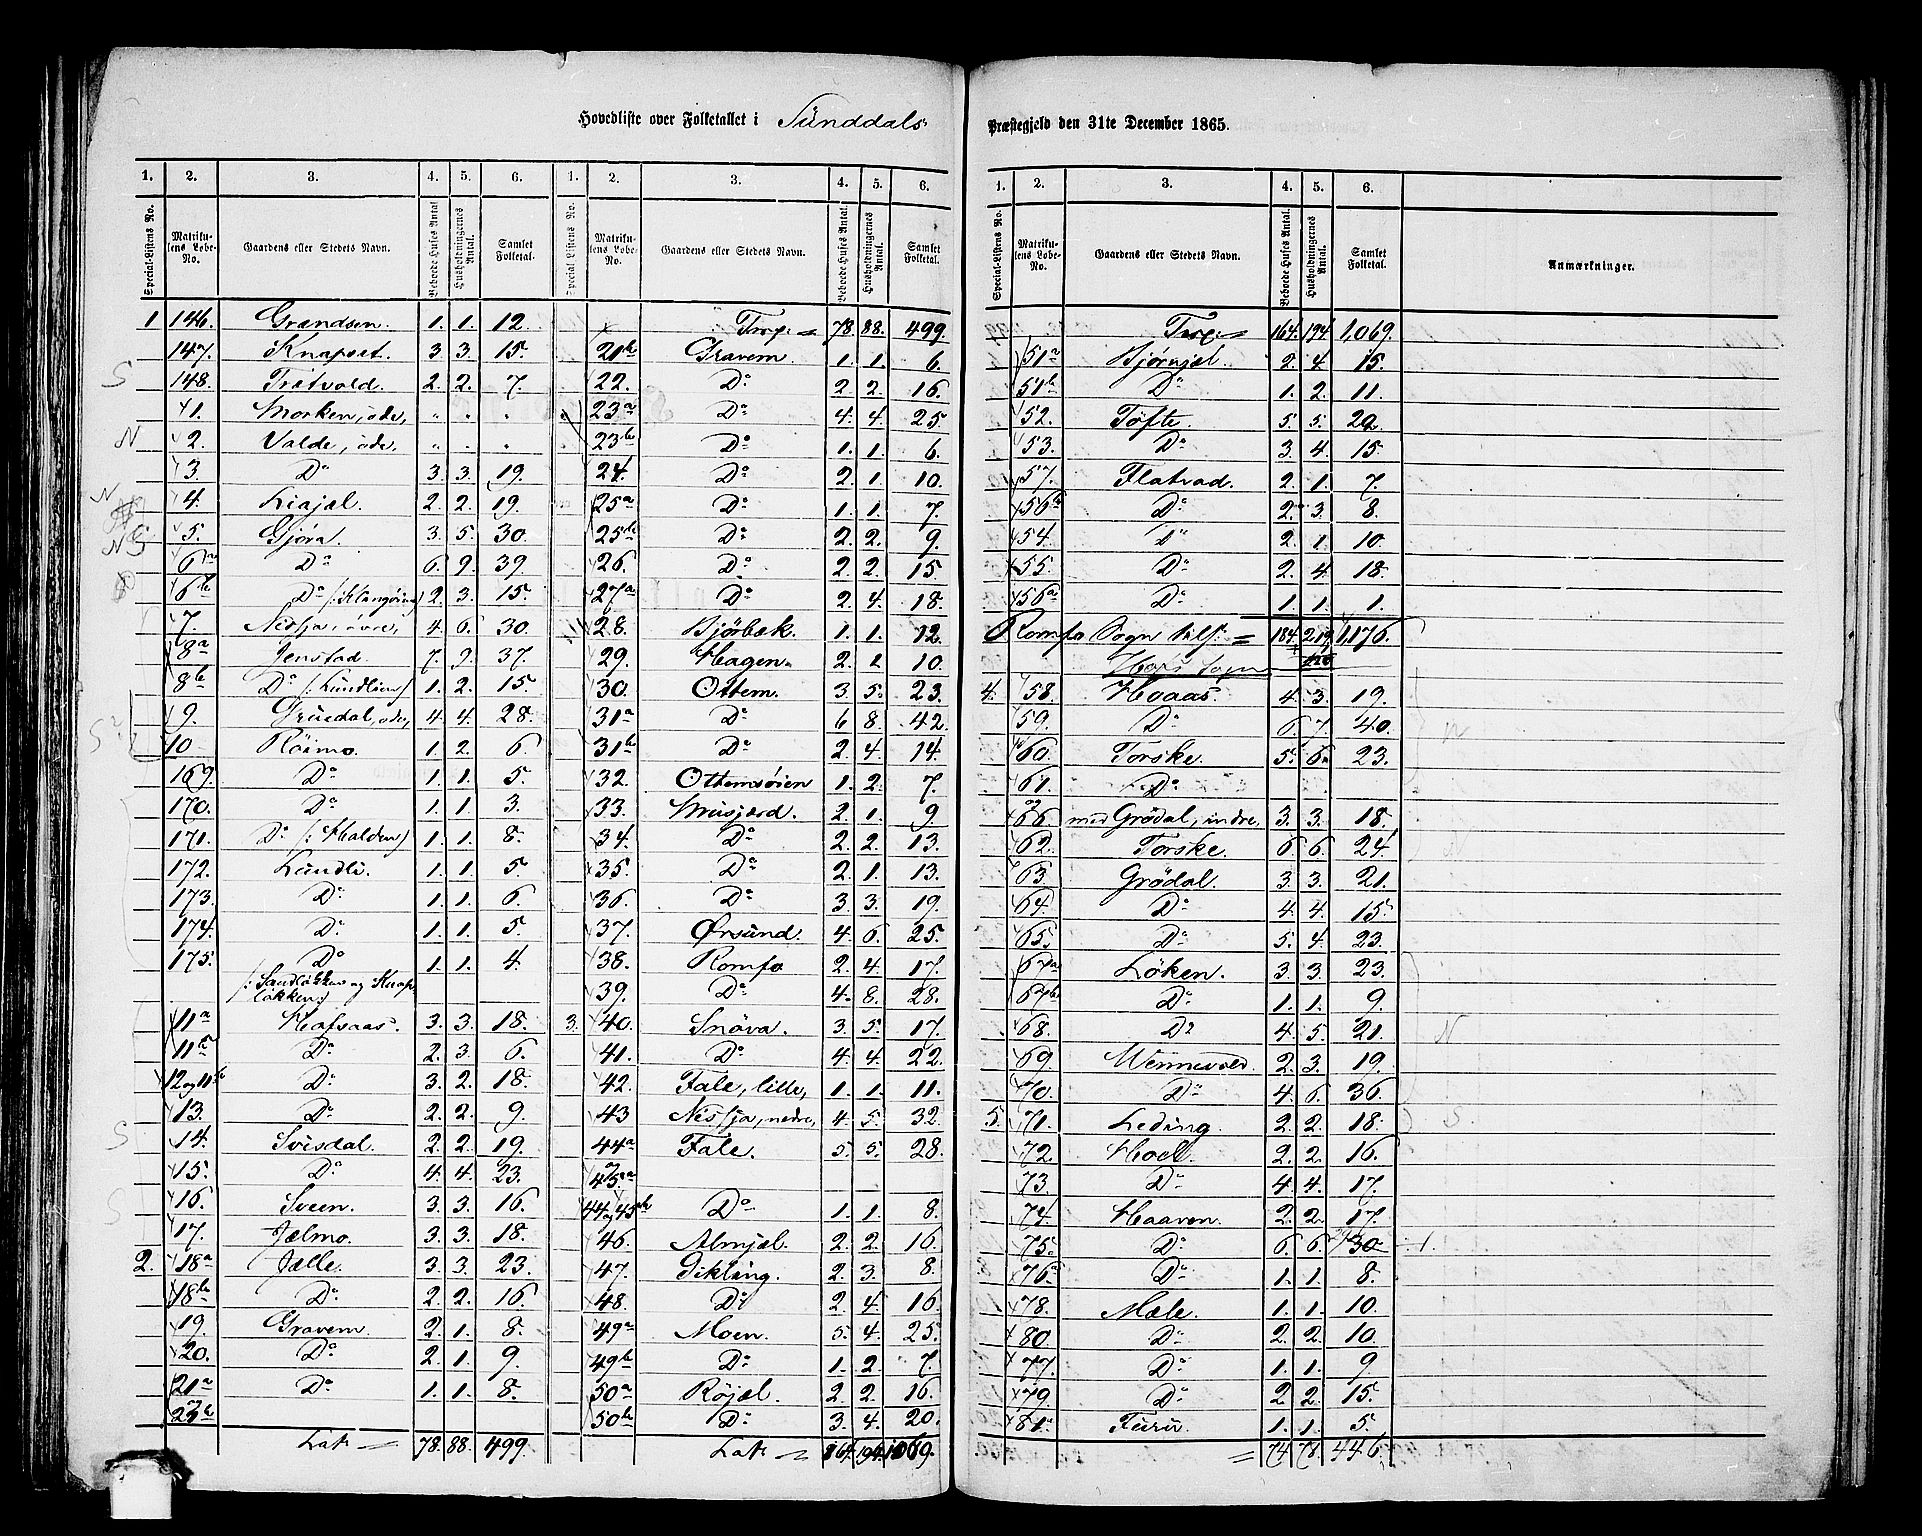 Hovedliste over Folketallet i Sünddals Præstegjeld den 31te December 1865.
1. 2. 3. 4. 5. 6. 1. 2. 3. 4. 5. 6.
Special-Listens No. Matrikulens Løbe-No. Gaardens eller Stedets Navn. Beboede Huses Antal Husholdningernes Antal. Samlet Folketal. Special-Listens No. Matrikulens Løbe-No. Gaardens eller Stedets Navn. Beboede Huses Antal. Husholdningernes Antal. Samlet Folketal.
1 146. Grændsen. 1. 1. 12
147. Knapset. 3. 3. 15.
148. Tretvold. 2. 2. 7.
1. Morken, øde, " " "
2. Valde, øde. " " "
3. Do 3. 3. 19.
4. Liajæl. 2. 2. 19.
5. Gjøra. 3. 5. 30.
6a Do 6. 9. 39.
6b Do 2. 3. 15.
7. Nisja, øvre, 4. 6. 30.
8a Jenstad. 7. 9. 37.
8b Do (: Lundlien:) 1. 2. 15.
9. Grüedal, øde, 4. 4. 28.
10 Röimo. 1. 2. 6.
169. Do 1. 1. 5.
170. Do 1. 1. 3.
171. Do (: Halden:) 1. 1. 8.
172. Lundli. 1. 1. 5.
173. Do 1. 1. 6.
174. Do 1. 1. 5.
175. Do 1. 1. 4.
(: Sandløkken og Knapløkken:)
11a Hafsaas. 3. 3. 18.
11b Do 2. 3. 6.
12 og 11 Do 3. 2. 18.
13. Do 2. 2. 9.
14. Svisdal. 2. 2. 19.
15. Do 4. 4. 23.
16. Sveen. 3. 3. 16.
17. Jælmo. 3. 3. 18.
2. 18a Jælle. 3. 3. 23.
18b Do 2. 2. 16.
19. Gravem. 2. 1. 8.
20. Do 2. 1. 9.
21a Do 1. 1. 8.
Lat. = 78. 88. 499.
Trsp: = 78. 88. 499.
21b Gravem. 1. 1. 6.
22. Do 2. 2. 16.
23a Do 4. 4. 25.
23b Do 1. 1. 6.
24. Do 2. 1. 10.
25a Do 1. 1. 7.
25b Do 2. 2. 9.
26. Do 2. 2. 15.
27a Do 2. 4. 18.
28. Bjørbæk. 1. 1. 12
29. Hagen. 2. 2 10.
30. Ottem. 3. 5. 23.
31a Do 6 8. 42.
31b Do 2. 4. 14.
32. Ottemsøien 1. 2. 7.
33. Musjærd. 2. 1. 9
34. Do 2. 2. 13.
35. Do 2. 1. 13.
36. Do 3. 3. 19.
37. Ørsünd. 4. 6. 25.
38. Romfo 2. 4. 17.
39. Do 4. 8. 28.
3. 40. Snöva. 3. 5. 17.
41. Do 4. 4. 22.
42. Fale, lille, 1. 1. 11.
43 Nisja, nedre, 4. 5. 32.
44a Fale. 5. 5. 28.
45a
44 og 45b Do 1. 1. 8.
46. Almjæl. 2. 2. 16.
47. Sikling. 2. 3. 8.
48. Do 2. 4. 16.
49a Moen. 5. 4. 25.
49b Do 1. 2. 7.
50a Röjæl. 2. 2. 16.
50b Do 3. 4. 20.
Lat. = 164. 194. 1069.
1. 2. 3. 4. 5. 6.
Special-Listens No. Matrikulens Løbe-No. Gaardens eller Stedets Navn. Beboede Huses Antal. Husholdningernes Antal. Samlet Folketal. Anmærkninger.
Trsp = 164. 194. 1,069.
51a Bjørnjæl. 2. 4. 15.
51b Do 1. 2. 11.
52. Tøfte. 5. 5. 22.
53. Do 3. 4. 15.
57. Flatvad. 2. 1. 7.
56b Do 2. 3. 8.
54. Do 2. 1. 10.
55. Do 2. 4. 18.
56a Do 1. 1. 1.
Romfo Sogn = 184. 219 1,176.
Hofs Sogn
4. 58. Hoaas. 4. 3. 19.
59. Do 6. 7. 40.
60. Torske. 5. 6. 23.
61. Do
66. med Grödal, indre, 3. 3. 18.
62. Torske. 6. 6. 24.
63. Grödal. 3. 3. 21.
64. Do 4. 4. 15.
65. Do 5. 4. 23.
67a Löken. 3. 3. 23.
67b Do 1. 1. 9.
68. Do 4. 5. 21.
69. Mennevold. 2. 3. 19.
70. Do 4. 6. 36.
5. 71. Leding. 2. 2. 18.
72. Hoel. 2. 2. 16.
73. Do 4. 4. 17.
74. Haaven. 2. 2. 17.
75. Do 6. 6. 30 1.
76a Do 1. 1. 8.
78. Mæle. 1. 1. 10.
80. Do 2. 2. 10.
77. Do 1. 1. 9
79. Do 2. 2. 15.
81. Furu. 1. 1. 5.
= 74. 78. 446.